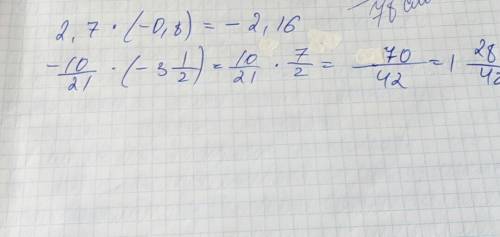 78 см
2,7 · (-0,8) = - 2,16
-10/21 · (-3 1/2) = 10/21 · 7/2 = 70/42 = 1 28/42